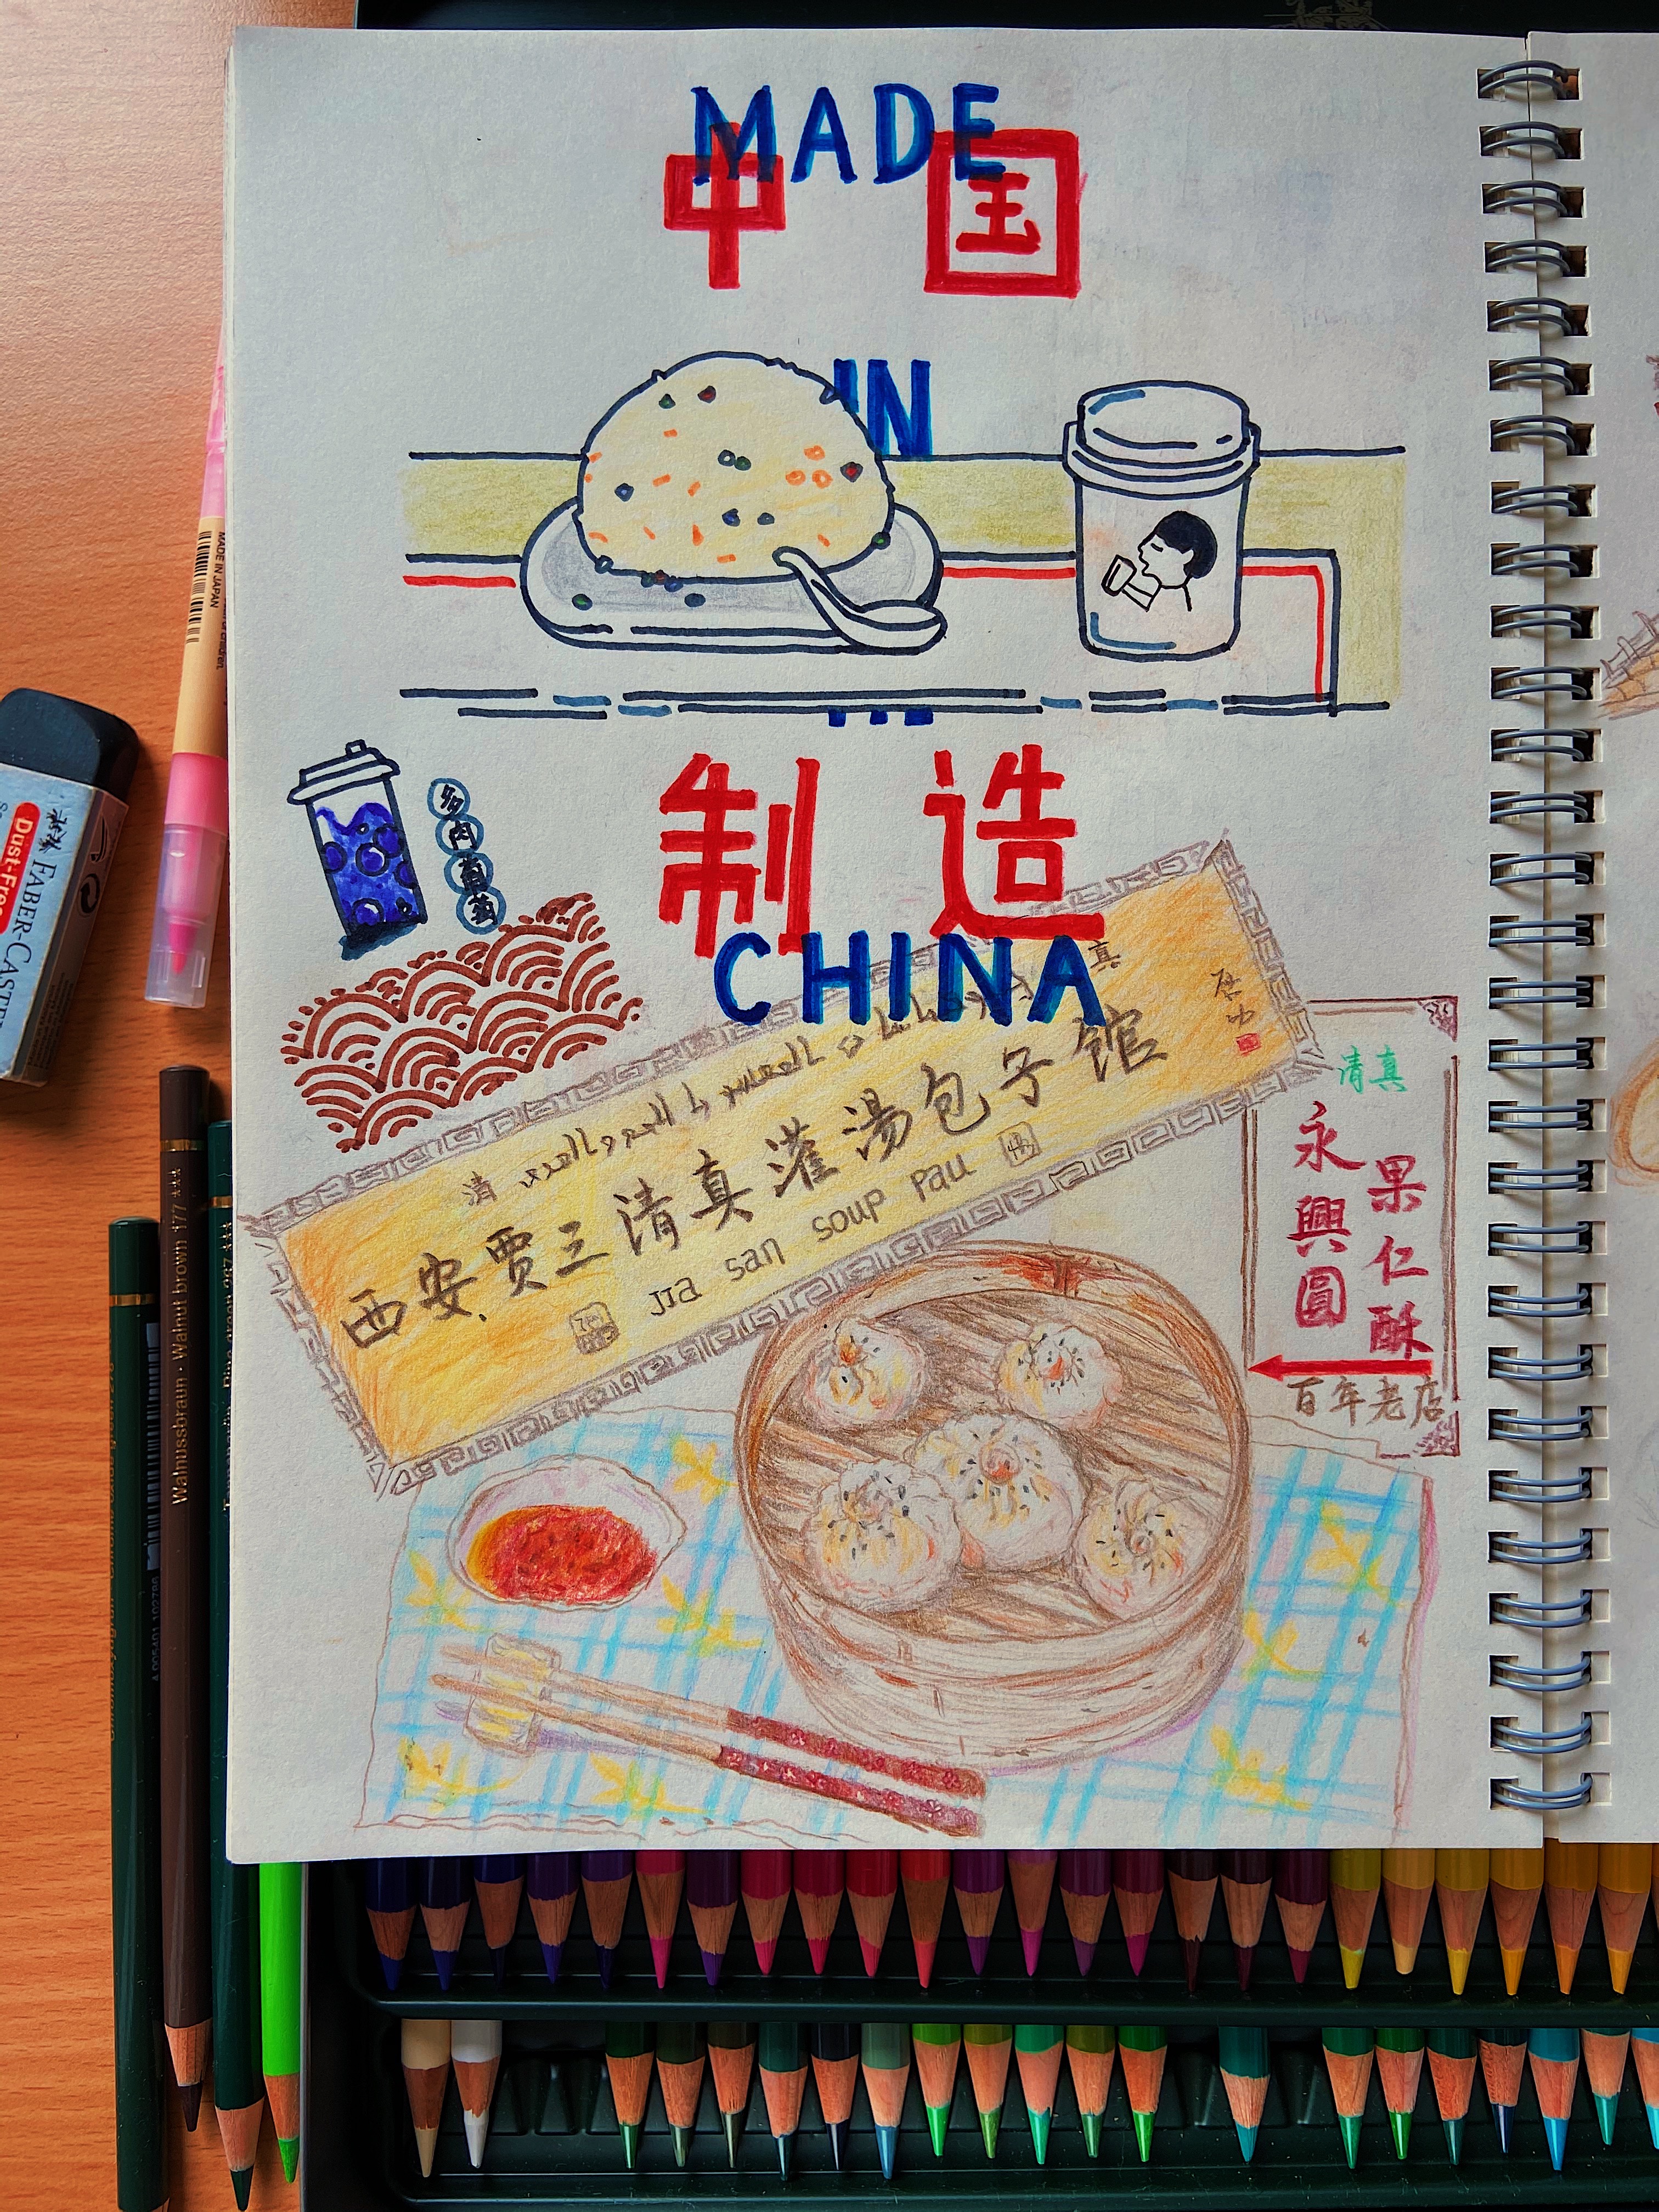 MADE
中国
IN
制造
CHINA
多肉葡萄
清
真
启功
西安贾三清真灌汤包子馆
JIa san soup pau
清真
永興圓
果仁酥
百年老店
MADE IN JAPAN
Dust-Free
FABER-CASTELL
Walnussbraun · Walnut brown 177 ***